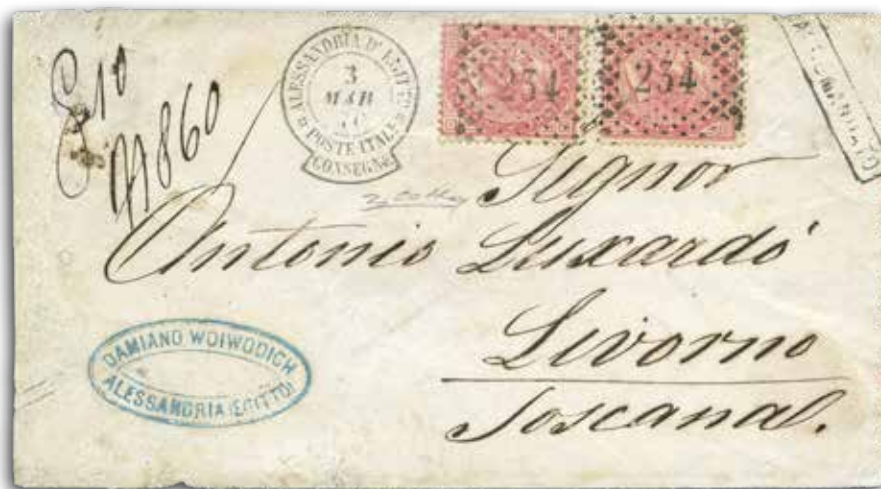 N 860
ALESSANDRIA D' EGITTO
3
MAR
70
POSTE ITALNE
CONSEGNE
234
234
RACCOMANDATO
Signor
Antonio Luxardo
Livorno
Toscana.
DAMIANO WOIWODICH
ALESSANDRIA (EGITTO)